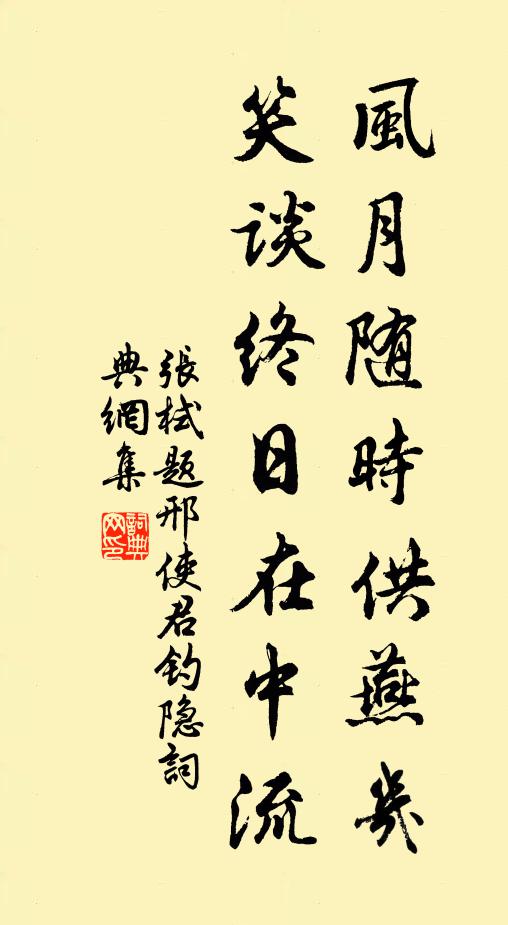 風月随時供燕幾
笑談終日在中流
張栻題邢使君釣隐詞
典網集
詞典網印